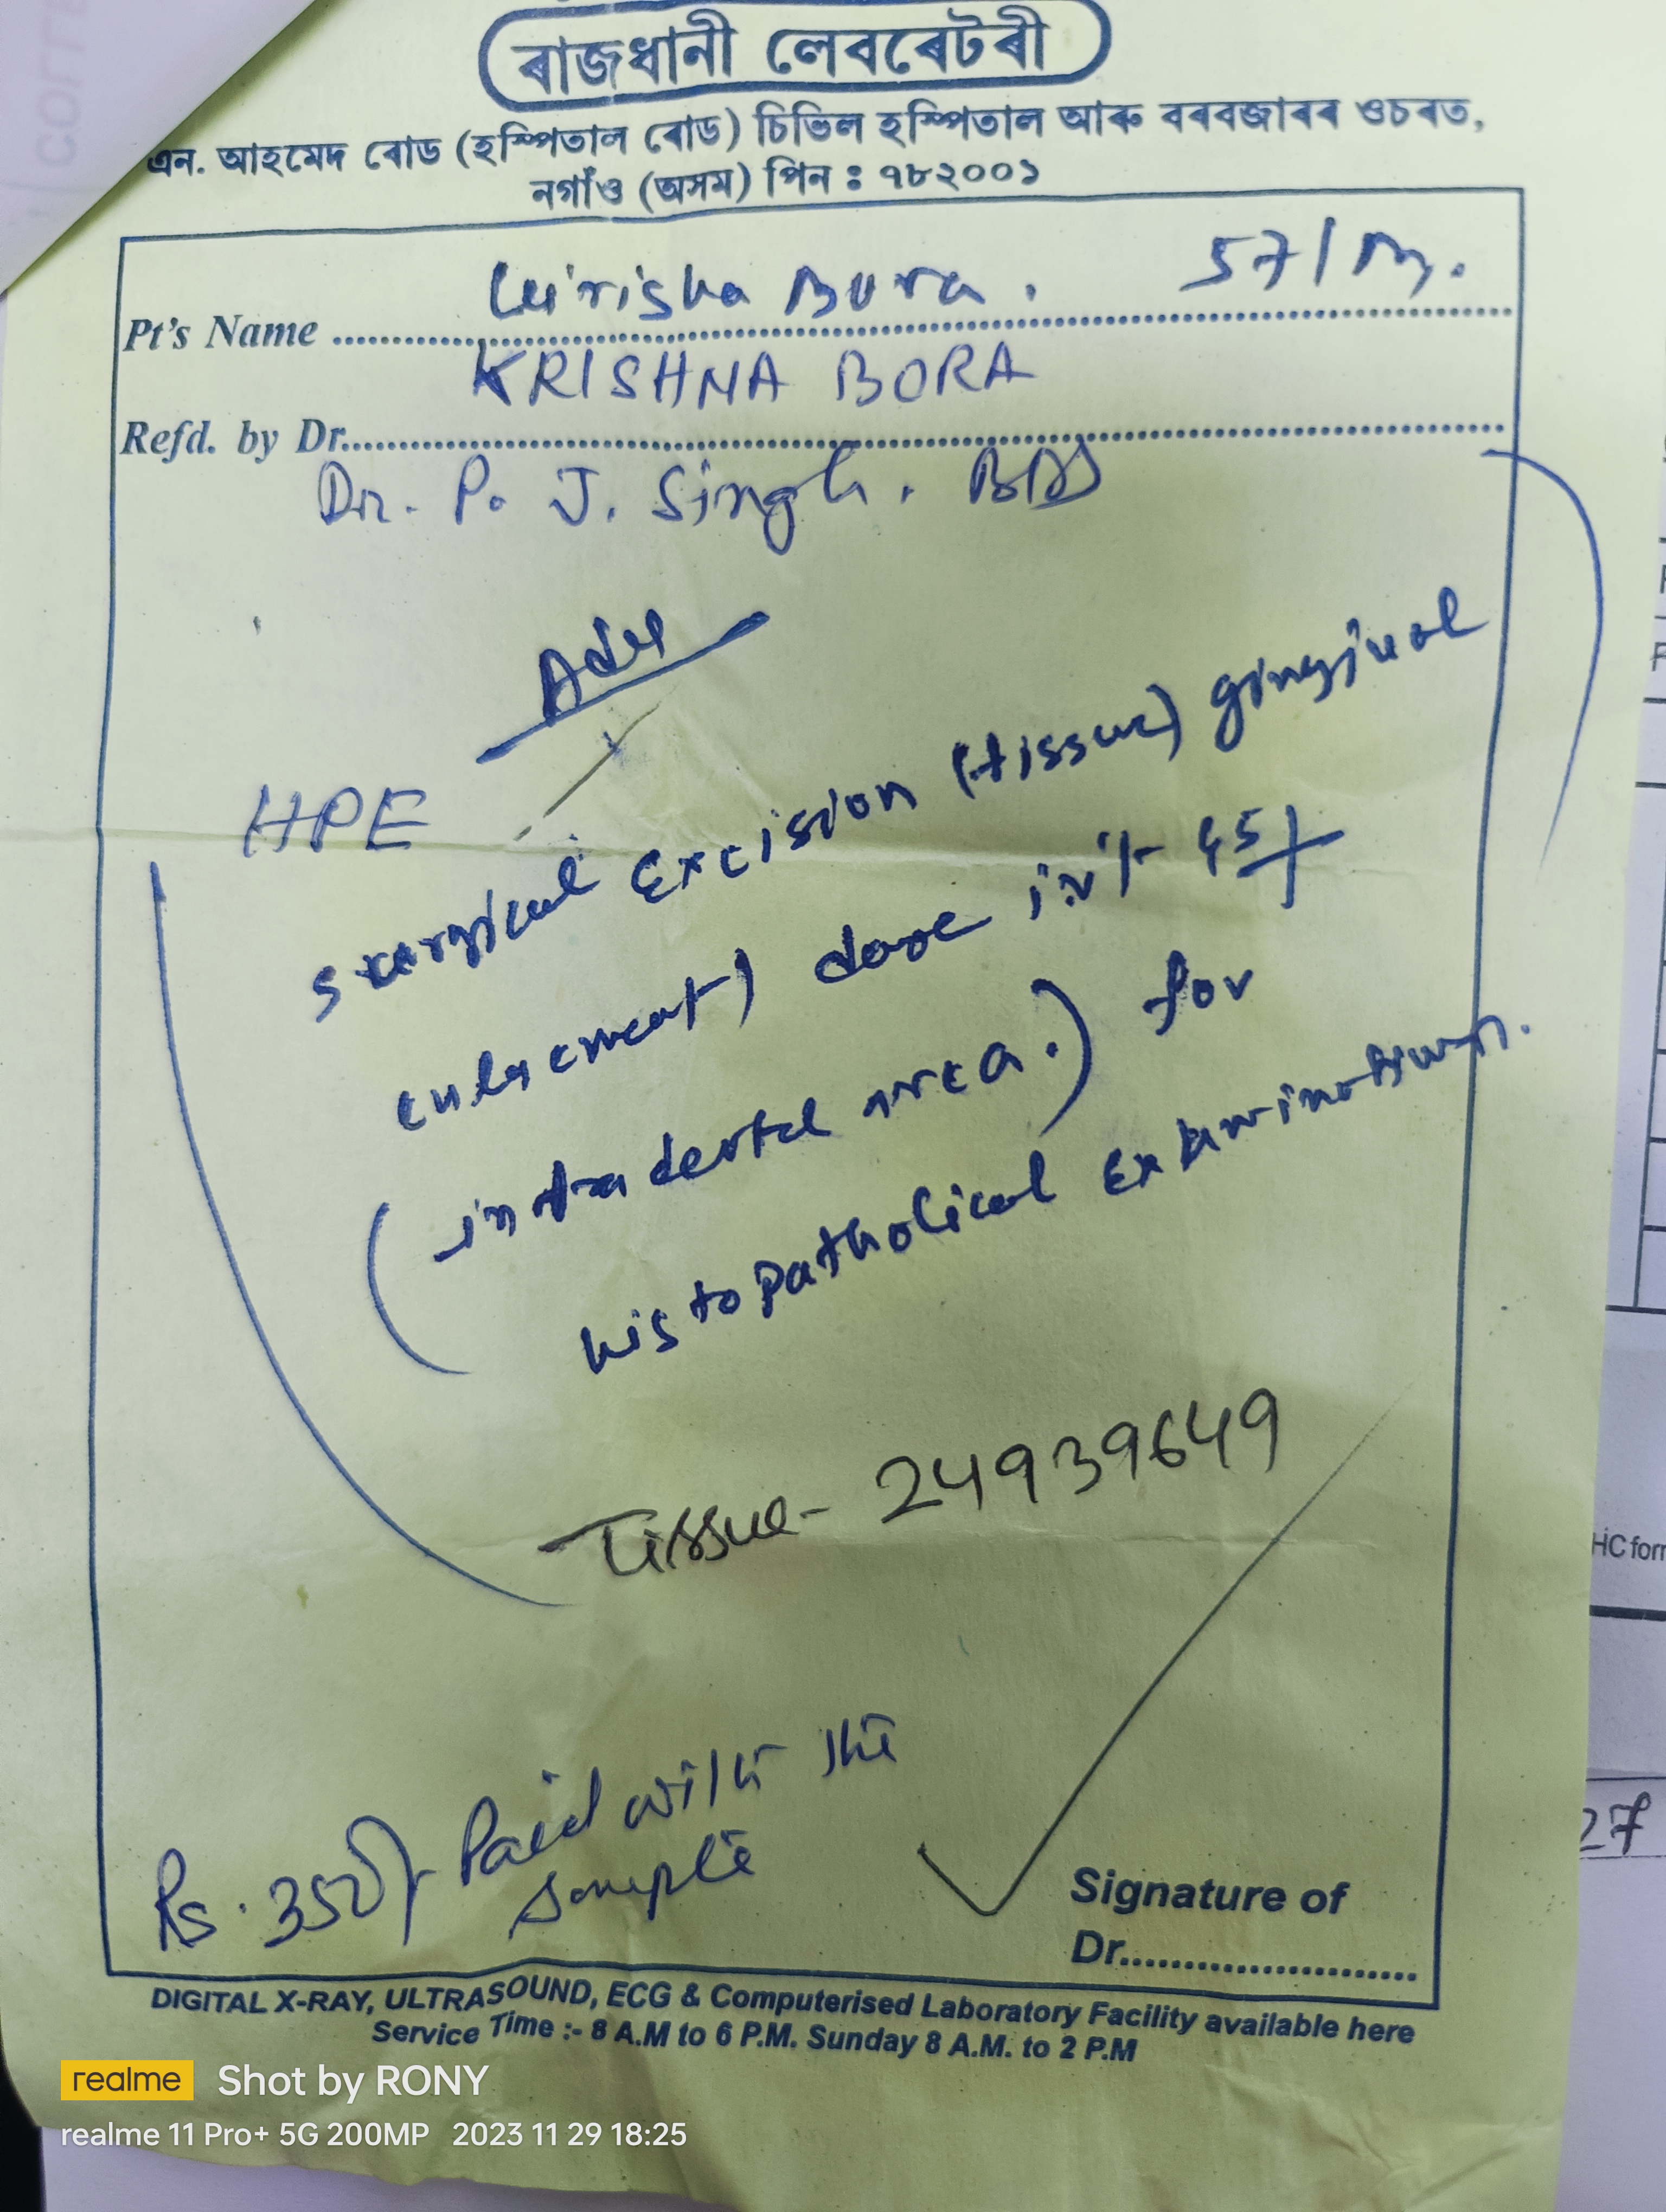 ৰাজধানী লেবৰেটৰী
এন. আহমেদ ৰোড (হস্পিতাল ৰোড) চিভিল হস্পিতাল আৰু বৰবজাৰৰ ওচৰত,
নগাঁও (অসম) পিন : ৭৮২০০১
Pt's Name Bora . 57/M.
KRISHNA BORA
Refd. by Dr.
Dr. P. J. Singh. BDS
Adv
HPE
surgical Excision (tissue) gingival
enlgement) done 45
(intradental area.) for
histopatholical Examination.
Tissue- 24939649
Rs. 350/- Paid with the
sample
Signature of
Dr.
DIGITAL X-RAY, ULTRASOUND, ECG & Computerised Laboratory Facility available here
Service Time :- 8 A.M to 6 P.M. Sunday 8 A.M. to 2 P.M
HC form
27
realme Shot by RONY
realme 11 Pro+ 5G 200MP 2023 11 29 18:25